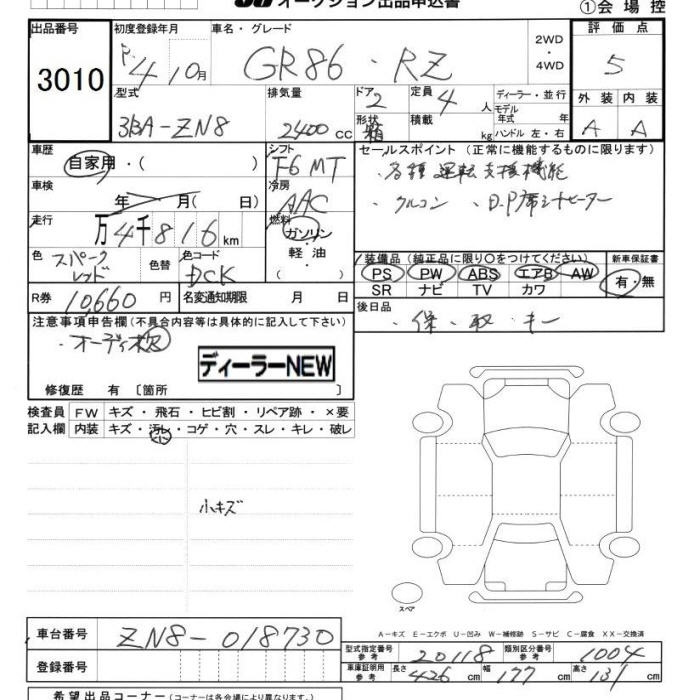 オークション出品申込書
①会場控
出品番号
3010
初度登録年月
R.4 10月
車名・グレード
GR86・RZ
2WD
・4WD
評価点
5
外装 内装
A A
型式
3BA-ZN8
排気量
2400cc
ドア
2
形状
箱
定員
4人
積載
kg
ディーラー・並行
モデル
年式 年
ハンドル 左・右
車歴
自家用・( )
車検
年 月( 日)
走行
万4千816km
色
スパークレッド
色替
色コード
DCK
R券 10,660円
名変通知期限 月 日
シフト
F6 MT
冷房
AAC
燃料
ガソリン
軽・油
( )
セールスポイント (正常に機能するものに限ります)
・各種運転支援機能
・クルコン ・D.P席シートヒーター
装備品 (純正品に限り○をつけてください)
PS PW ABS エアB AW
SR ナビ TV カワ
新車保証書
有・無
後日品
・保・取・キー
注意事項申告欄(不具合内容等は具体的に記入して下さい)
・オーディオレス
ディーラーNEW
修復歴 有 〔箇所 〕
検査員 FW キズ・飛石・ヒビ割・リペア跡・×要
記入欄 内装 キズ・汚レ・コゲ・穴・スレ・キレ・破レ
小キズ
スペア
A-キズ E-エクボ U-凹み W-補修跡 S-サビ C-腐食 XX-交換済
車台番号 ZN8-018730
登録番号
型式指定番号 参考 20118 類別区分番号 参考 1004
車庫証明用 参考 長さ 426cm 幅 177cm 高さ 131cm
希望出品コーナー(コーナーは各会場により異なります。)